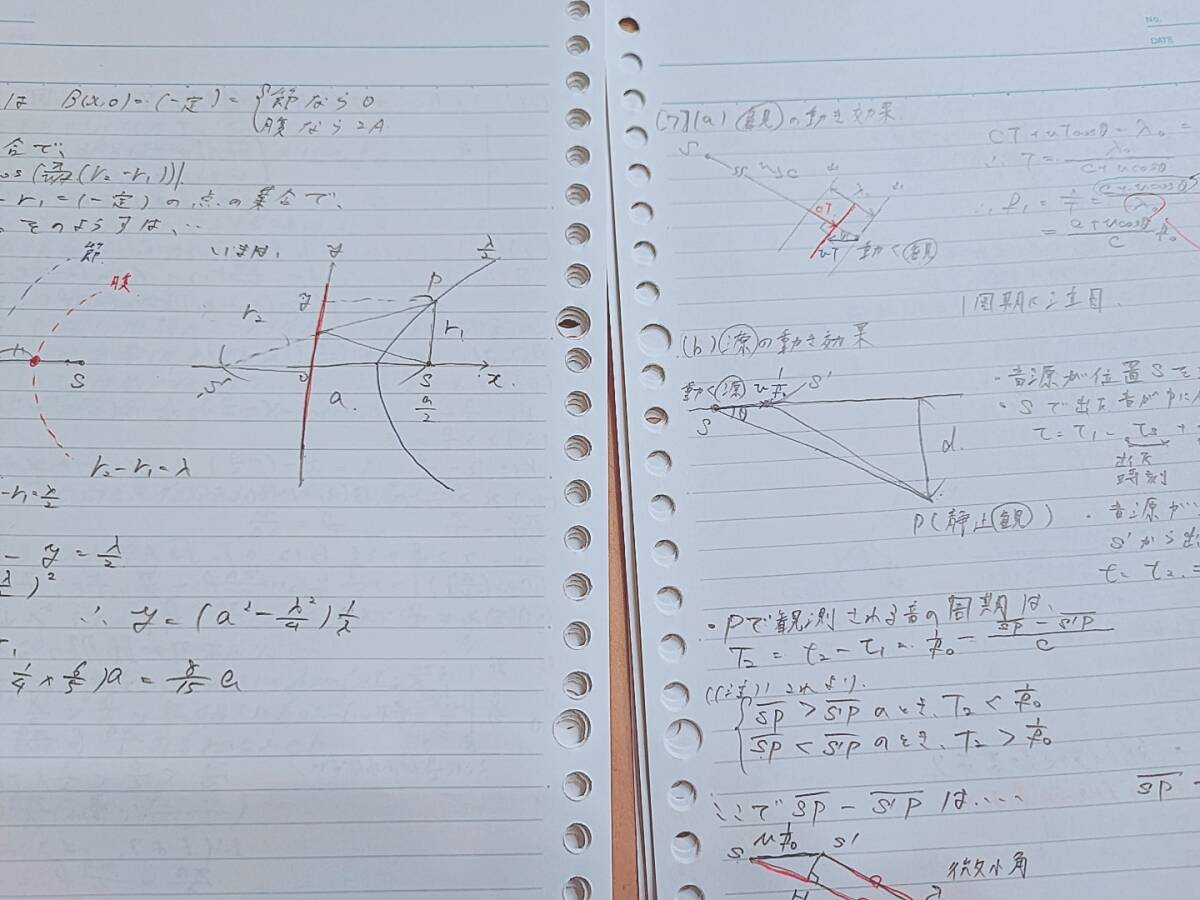 は B(x,0)=(一定)= { 節なら0
腹なら2A
合で、
os( (r₂-r₁))|.
-r₁=(一定)の点の集合で、
そのようすは、…
節
腹
S
r₂-r₁=λ
-r₁=λ/2
いまは、
y
λ/2
P
y
r₂
r₁
S'
0
a
S
x.
a/2
- y = λ/2
λ/2)²
∴ y=(a²-λ²/4)1/λ
1/4×6/5)a = 8/15 a
No.
DATE
[7](a) (観)の動き効果
S
λ₀
cT
uT
動く(観)
cT+uTcosθ=λ₀
∴ T= λ₀/(c+ucosθ)
∴ f₁=1/T=(c+ucosθ)/λ₀
=(c+ucosθ)/c f₀
1周期に注目.
(b)(源)の動き効果
動く(源) u1/f₀ S'
S
θ
d.
P(静止(観))
・音源が位置Sを
・Sで出た音がPに
t=t₁-
出た
時刻
・音源が…
S'から出
t=t₂.=
・Pで観測される音の周期は、
T₂=t₂-t₁=1/f₀-(SP-S'P)/c
((注)) これより.
{ SP>S'Pのとき、T₂<1/f₀
SP<S'Pのとき、T₂>1/f₀
ここでSP-S'Pは…… SP-
u1/f₀
S
S'
H
微小角